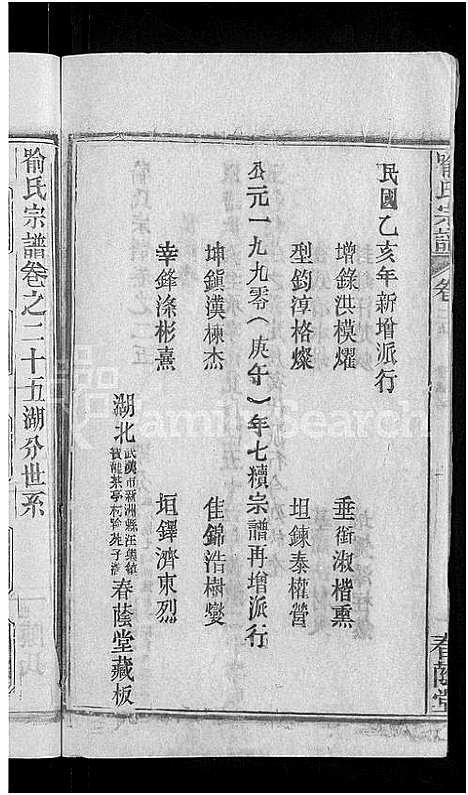 喻氏宗譜 卷二五
春蔭堂
民國乙亥年新增派行
增錄洪模燿 垂銜淑楷熏
型鈞淳格燦 坦鍊泰權營
公元一九九零(庚午)年七續宗譜再增派行
坤鎮漢楝杰 佳錦浩樹燮
幸鋒滌彬熹 垣鐸濟東烈
湖北 武漢市新洲縣汪集鎮 茶亭村 春蔭堂藏板
喻氏宗譜卷之二十五湖分世系
FamilySearch